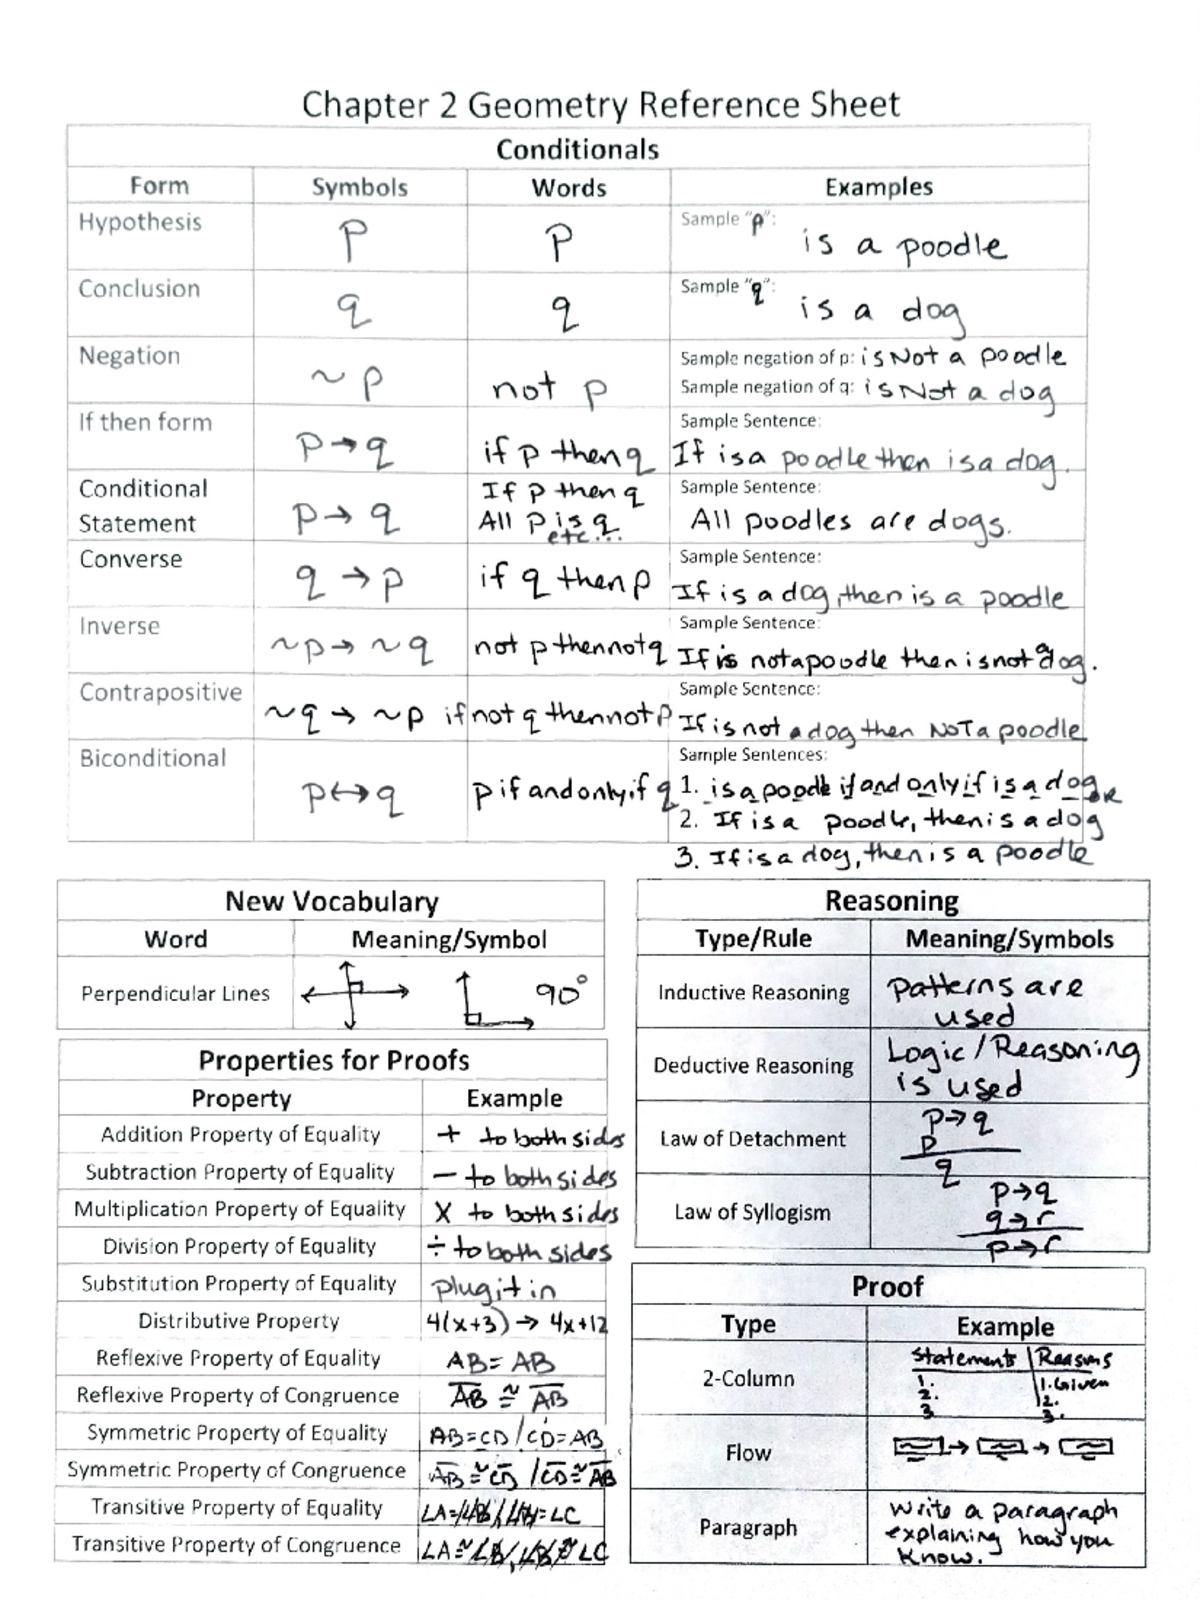 Chapter 2 Geometry Reference Sheet
Conditionals
Form Symbols Words Examples
Hypothesis P P Sample "p": is a poodle
Conclusion q q Sample "q": is a dog
Negation ~p not p Sample negation of p: is Not a poodle
Sample negation of q: is Not a dog
If then form p→q if p then q Sample Sentence:
If is a poodle then is a dog.
Conditional Statement p→q If p then q
All p is q
etc...
Sample Sentence:
All poodles are dogs.
Converse q→p if q then p Sample Sentence:
If is a dog, then is a poodle
Inverse ~p→~q not p then not q Sample Sentence:
If is not a poodle then is not a dog.
Contrapositive ~q→~p if not q then not p Sample Sentence:
If is not a dog then NOT a poodle
Biconditional p↔q p if and only if q Sample Sentences:
1. is a poodle if and only if is a dog. OR
2. If is a poodle, then is a dog
3. If is a dog, then is a poodle
New Vocabulary
Word Meaning/Symbol
Perpendicular Lines 90°
Properties for Proofs
Property Example
Addition Property of Equality + to both sides
Subtraction Property of Equality − to both sides
Multiplication Property of Equality x to both sides
Division Property of Equality ÷ to both sides
Substitution Property of Equality plug it in
Distributive Property 4(x+3) → 4x+12
Reflexive Property of Equality AB = AB
Reflexive Property of Congruence A̅B̅ ≅ A̅B̅
Symmetric Property of Equality AB=CD / CD=AB
Symmetric Property of Congruence A̅B̅ ≅ C̅D̅ / C̅D̅ ≅ A̅B̅
Transitive Property of Equality ∠A=∠B/∠B=∠C
Transitive Property of Congruence ∠A≅∠B, ∠B≅∠C
Reasoning
Type/Rule Meaning/Symbols
Inductive Reasoning Patterns are
used
Deductive Reasoning Logic/Reasoning
is used
Law of Detachment p→q
p
q
Law of Syllogism p→q
q→r
p→r
Proof
Type Example
2-Column Statements Reasons
1. 1. Given
2. 2.
3 3.
Flow
Paragraph Write a paragraph
explaining how you
know.